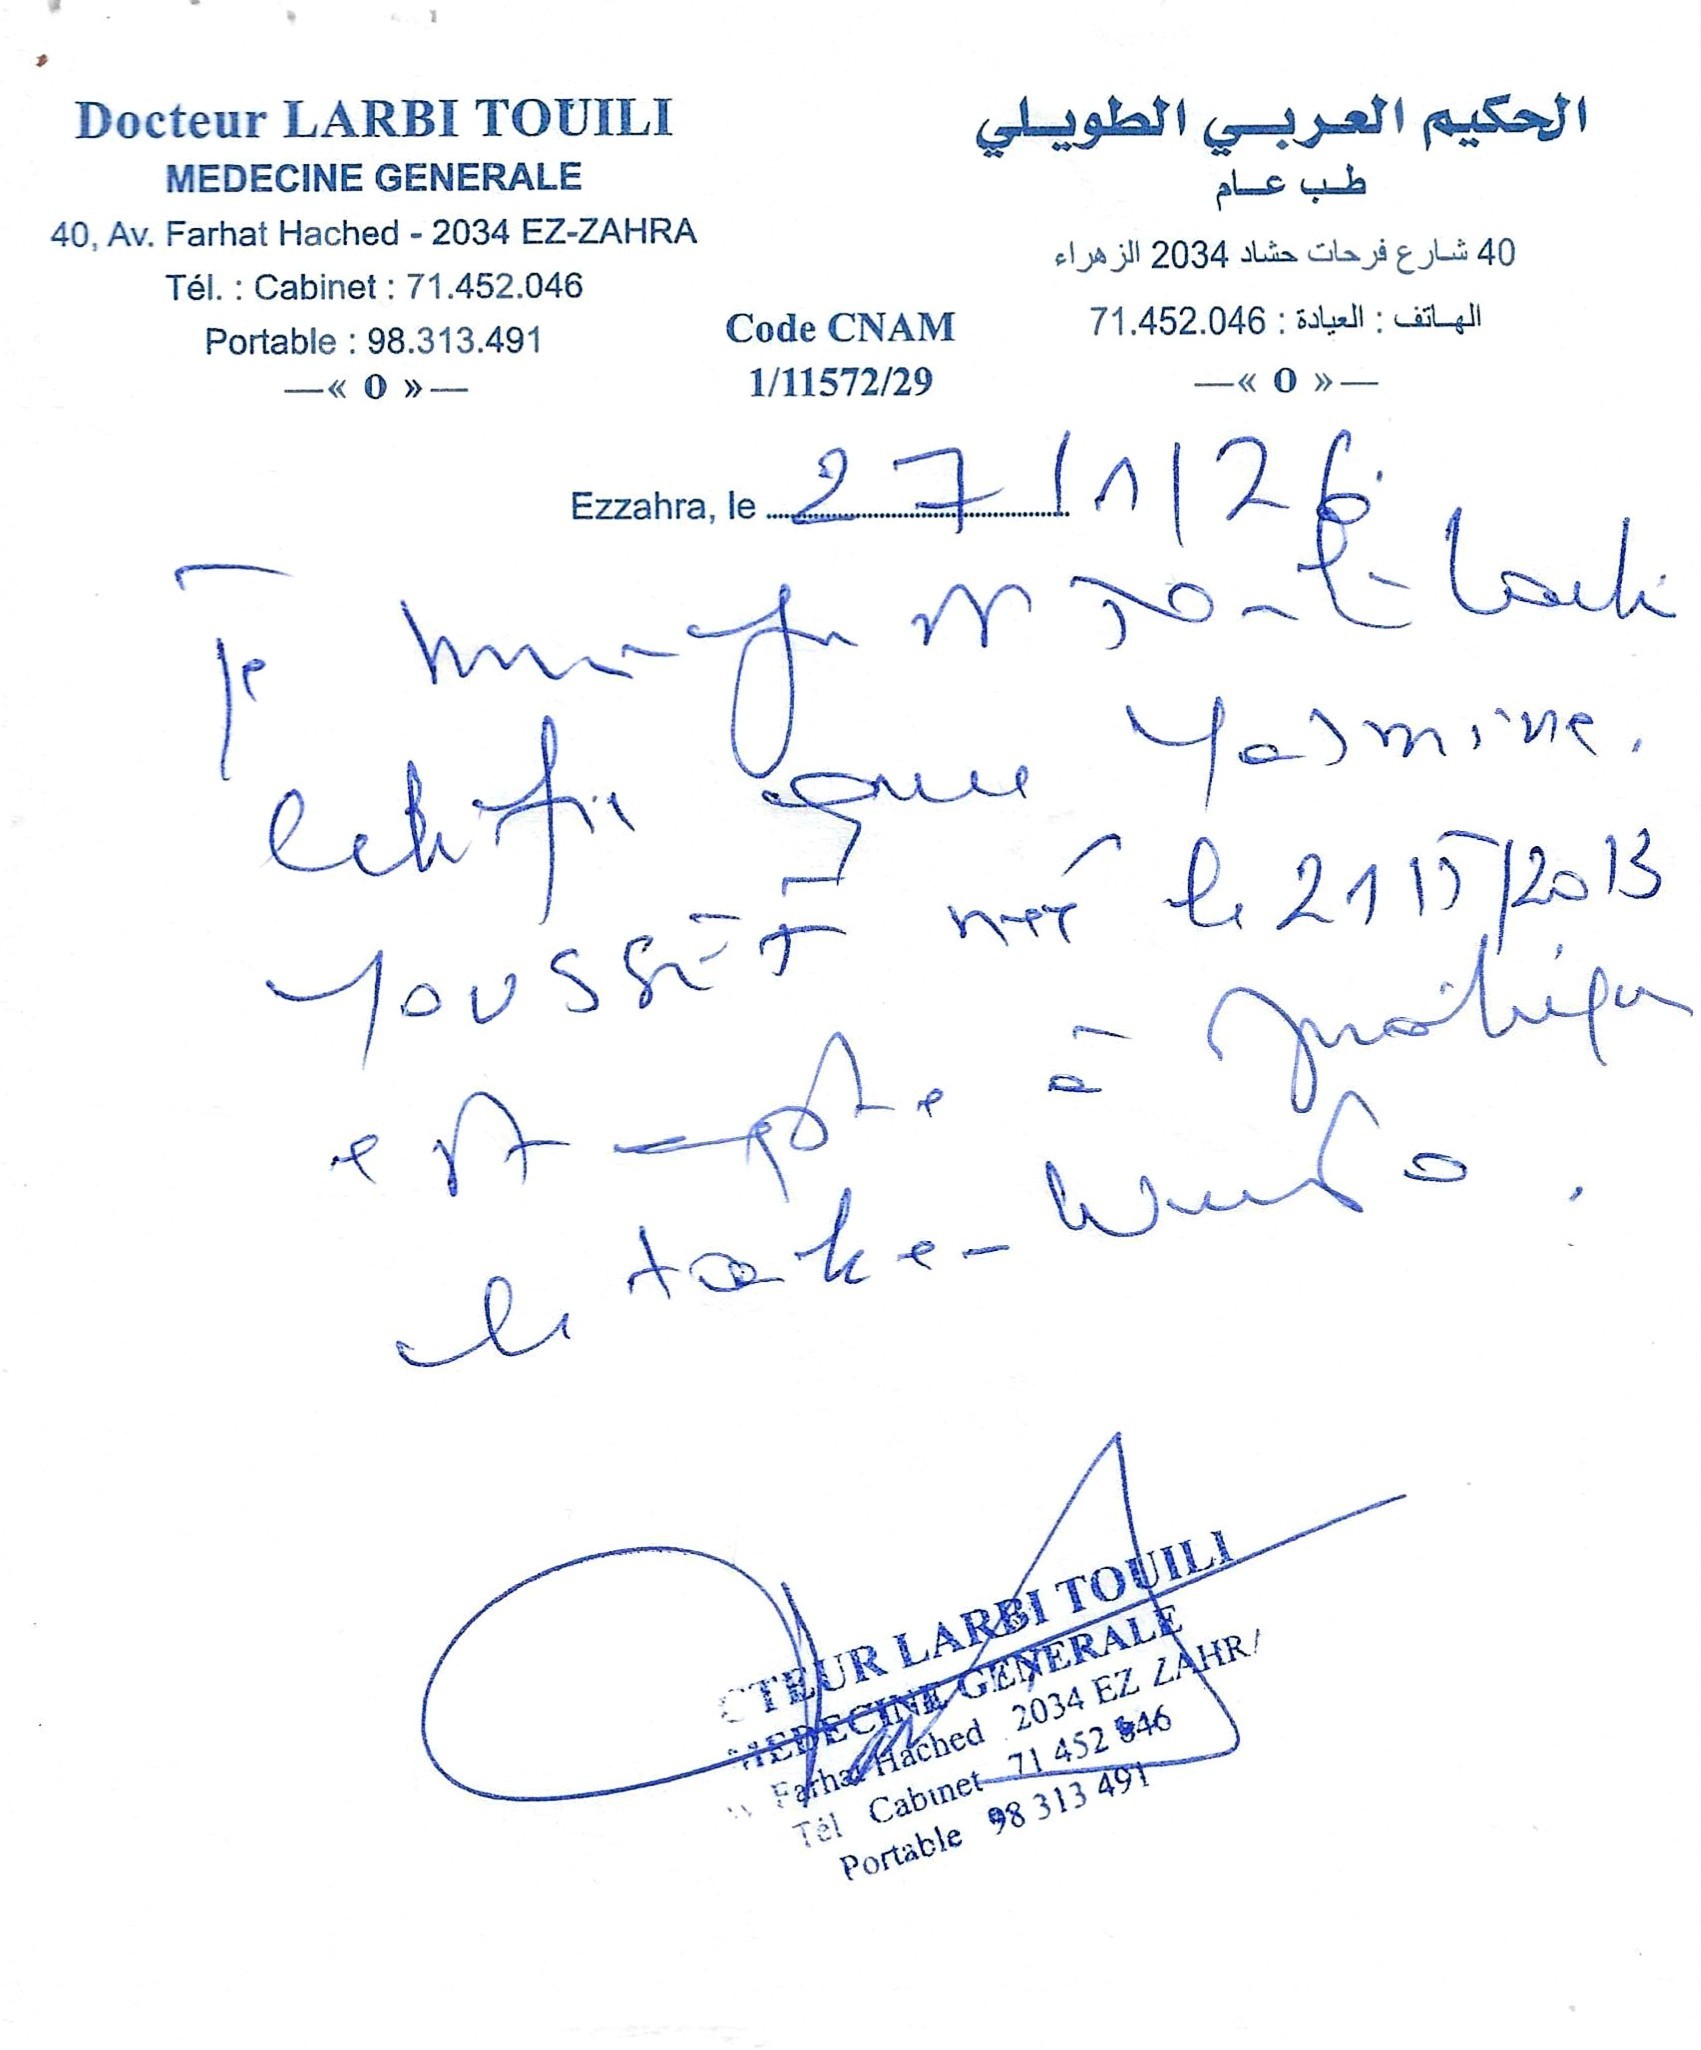 Docteur LARBI TOUILI
MEDECINE GENERALE
40, Av. Farhat Hached - 2034 EZ-ZAHRA
Tél. : Cabinet : 71.452.046
Portable : 98.313.491
—« 0 »—
الحكيم العربي الطويلي
طب عام
40 شارع فرحات حشاد 2034 الزهراء
الهاتف : العيادة : 71.452.046
—« 0 »—
Code CNAM
1/11572/29
Ezzahra, le 27/1/26
Je
certifie que Yasmine
YOUSSEF née le 21/5/2013
est apte à pratiquer
le taekwendo.
CTEUR LARBI TOUILI
MEDECINE GENERALE
Farhat Hached 2034 EZ ZAHR
Tél Cabinet 71 452 046
Portable 98 313 491